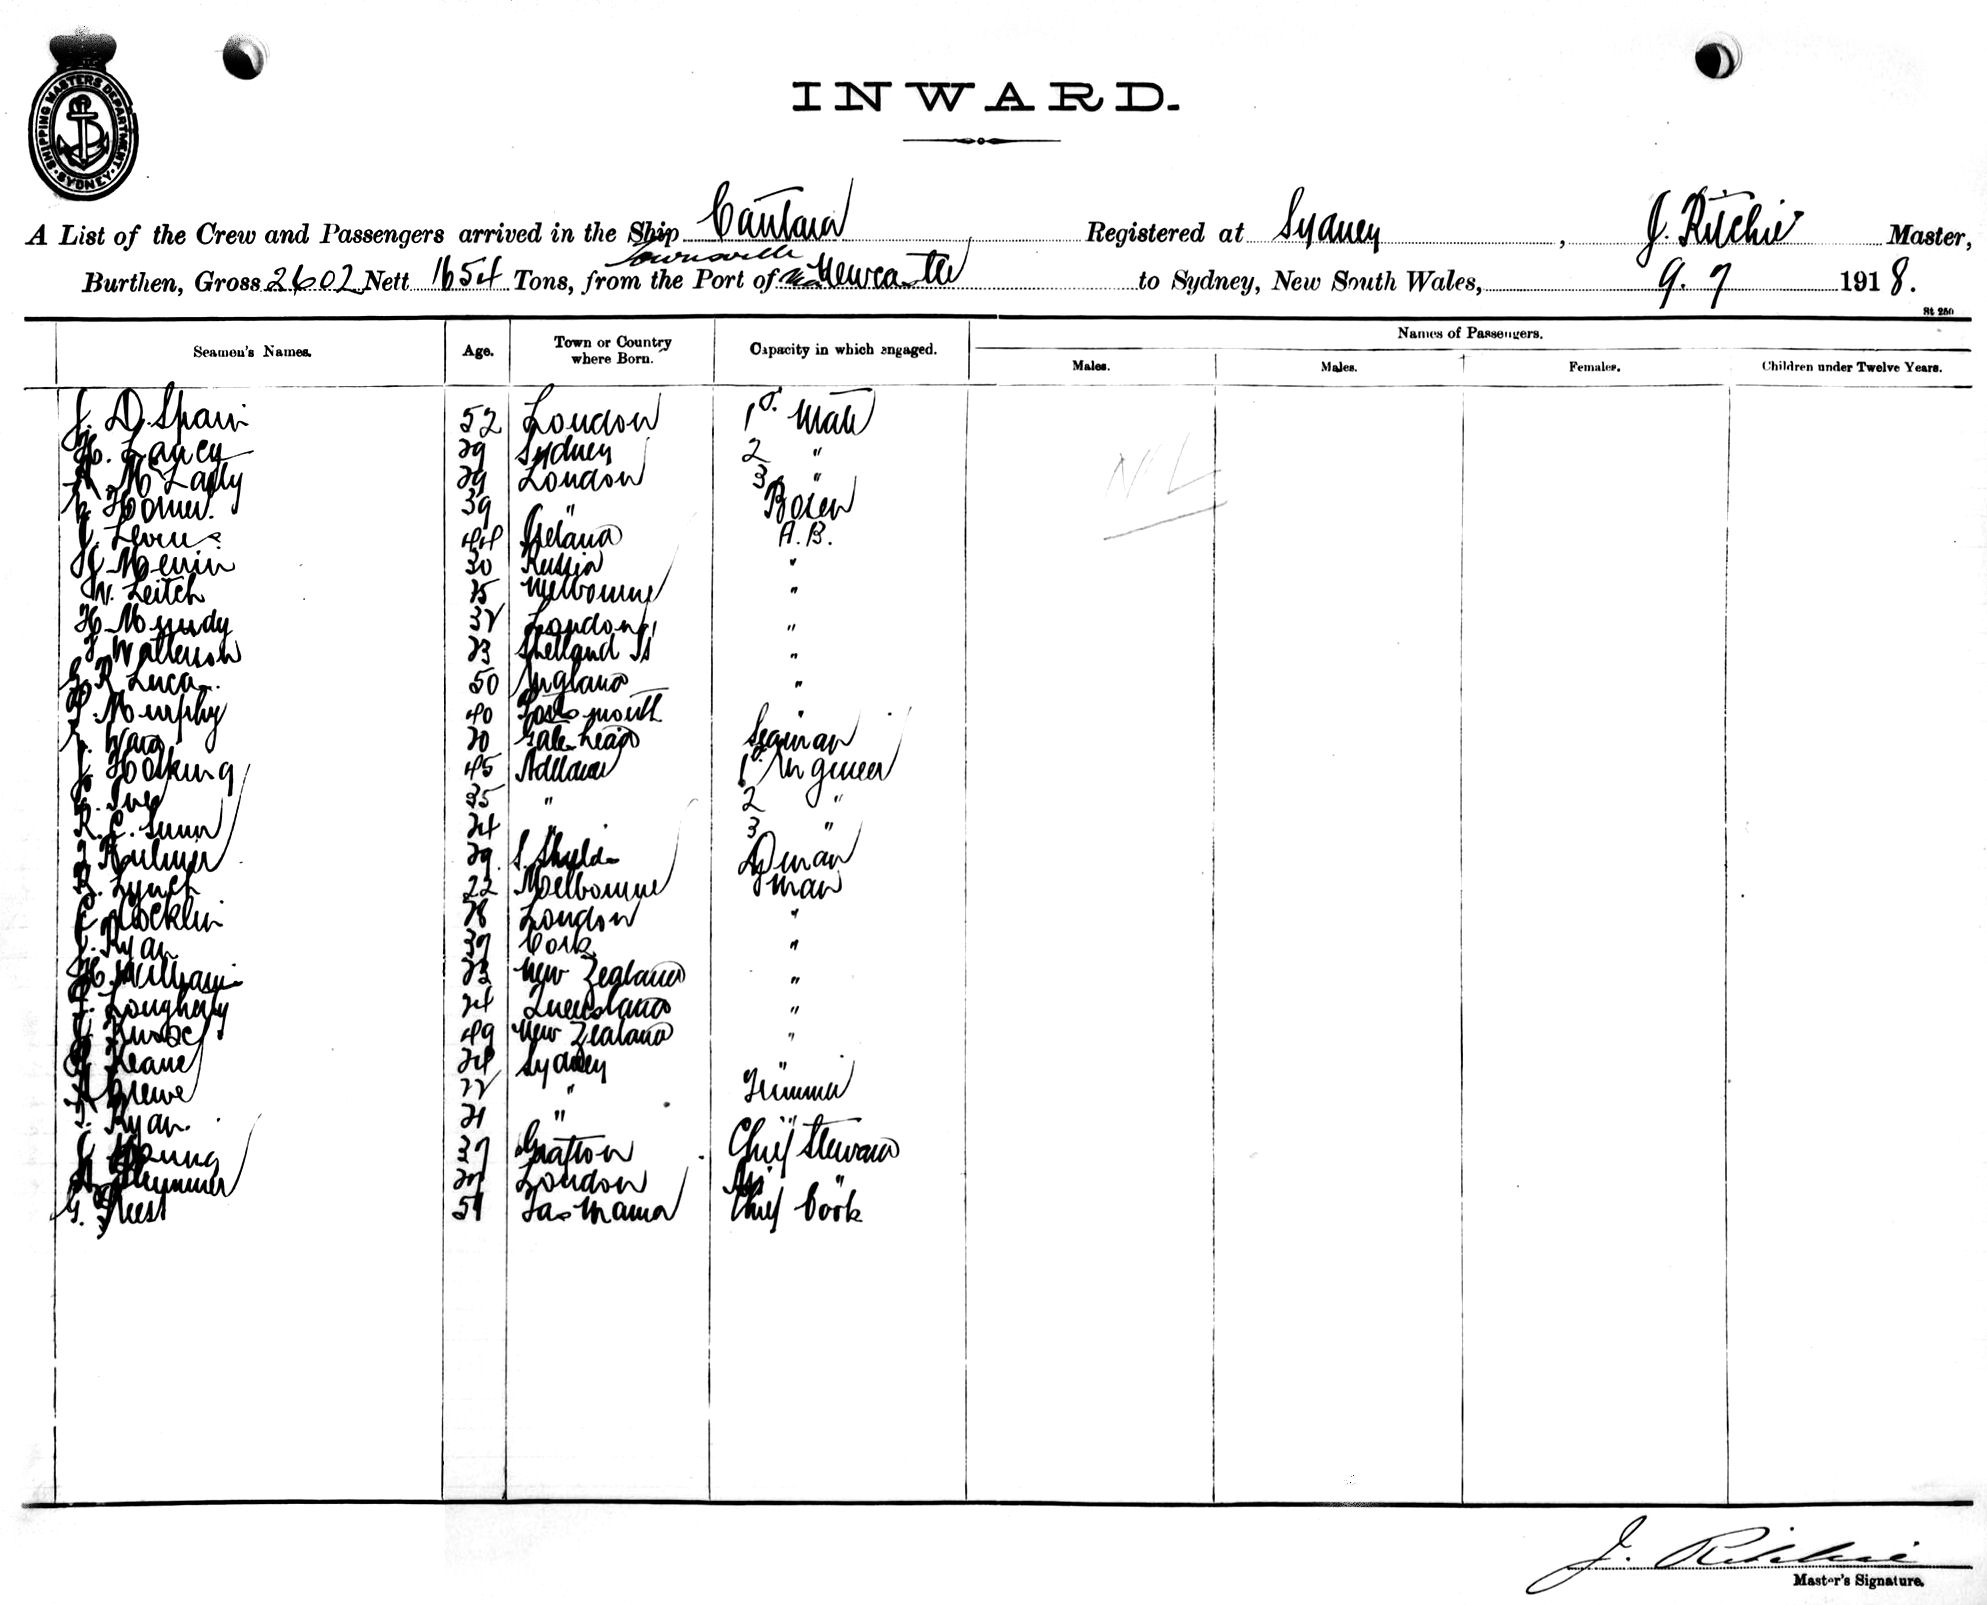 SHIPPING MASTERS DEPARTMENT
SYDNEY
INWARD.
A List of the Crew and Passengers arrived in the Ship Registered at Sydney, J. Ritchie Master,
Townsville
Burthen, Gross 2602 Nett 1654 Tons, from the Port of Newcastle to Sydney, New South Wales, 9. 7 1918.
St 250
Seamen's Names. Age. Town or Country where Born. Capacity in which engaged. Names of Passengers.
Males. Males. Females. Children under Twelve Years.
J. D. Spain 52 London 1st Mate
H. Lancy 29 Sydney 2 "
29 London 3 "
Horner. 39 " Bosen
44 Ireland A.B.
30 Russia "
W. Leitch 25 Melbourne "
H. Mundy 32 London "
Watterson 23 Shetland Is "
50 England "
P. Murphy 40 Portsmouth "
Ward 20 Gateshead Seaman
J. Hosking 45 Adelaide 1st Engineer
35 " 2 "
24 " 3 "
29 S. Shields Dman
Lynch 22 Melbourne man
28 London "
J. Ryan 39 Cork "
H. William 23 New Zealand "
Lougherty 24 Queensland "
49 New Zealand "
Keane 24 Sydney "
22 " Trimmer
Ryan. 21 " "
J. Young 37 Grafton Chief Steward
London "
G. 51 Tasmania Chief Cook
NIL
J. Ritchie
Master's Signature.